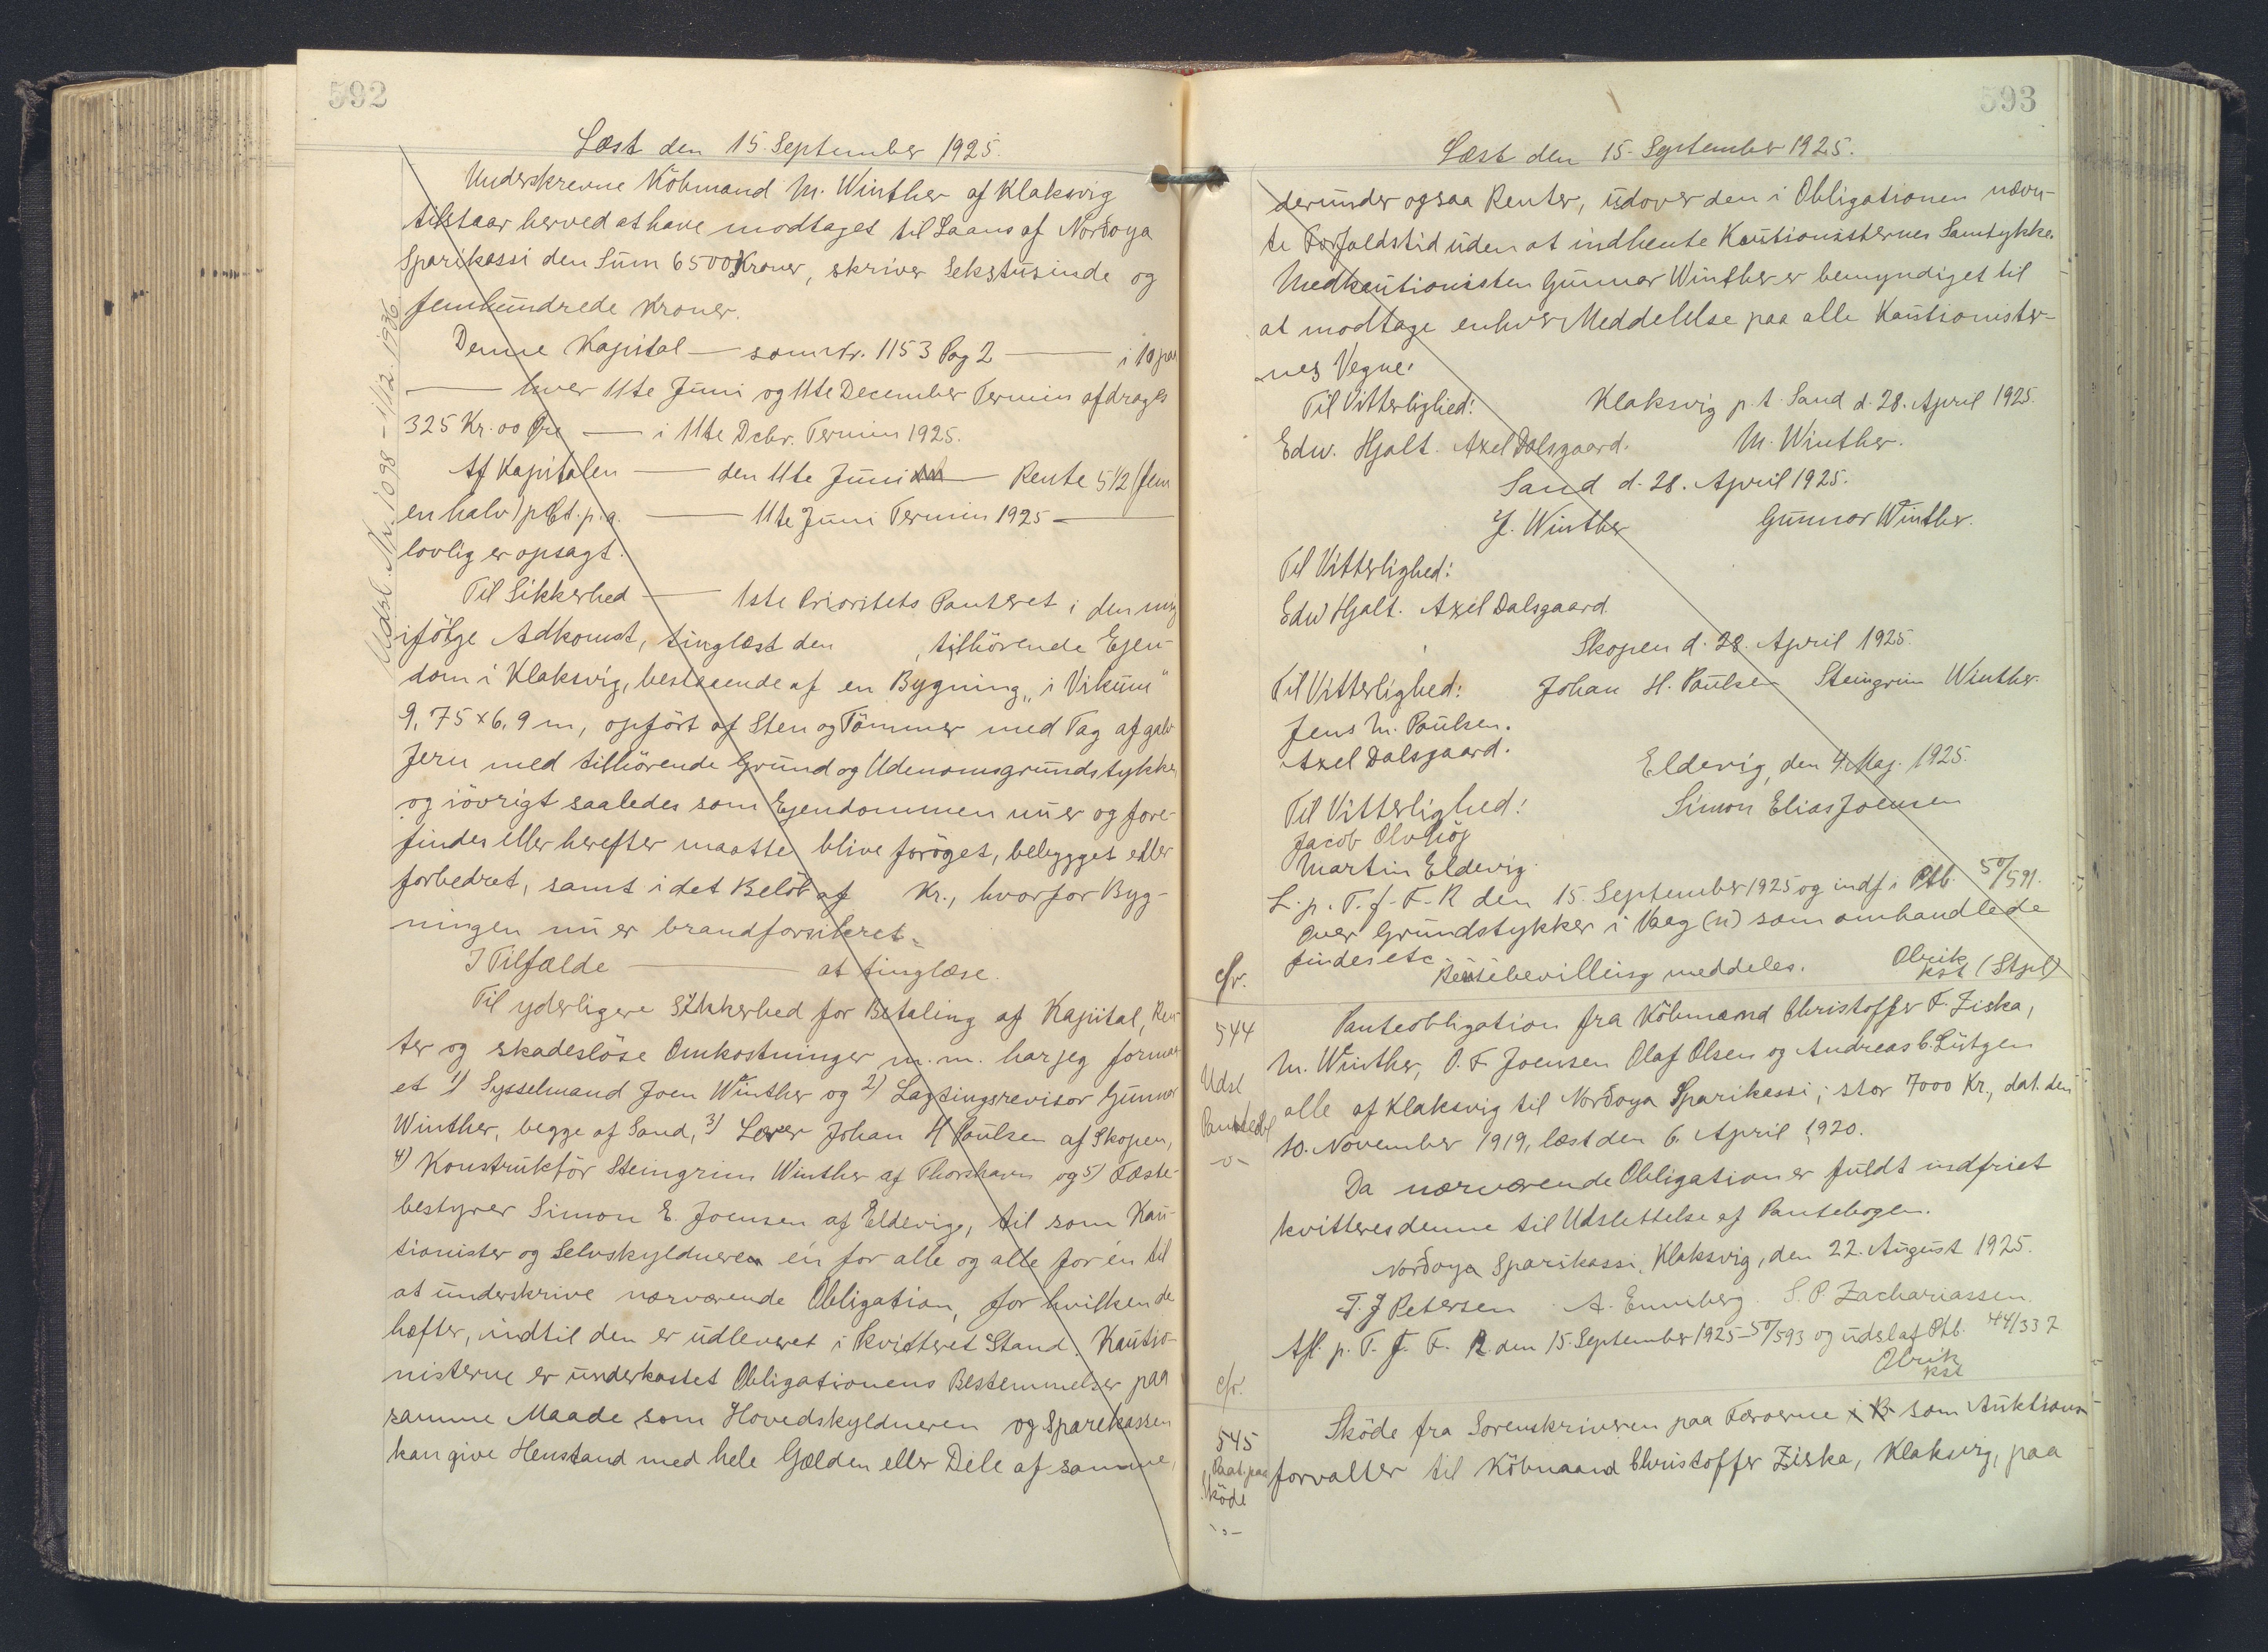 592
Læst den 15. September 1925.
Underskrevne Köbmand M. Winther af Klaksvig
tilstaar herved at have modtaget til Laans af Norðoya
Sparikassi den Sum 6500 Kroner, skriver Sekstusinde og
femhundrede Kroner.
Denne Kapital — som Nr. 1153 Pag 2 — i 10 par
— hver 11te Juni og 11te December Termin afdrages
325 Kr. 00 Øre — i 11te Dcbr. Termin 1925.
Af Kapitalen — den 11te Juni — Rente 5 1/2 (fem
en halv) pCt. p.a. — 11te Juni Termin 1925 —
lovlig er opsagt.
Til Sikkerhed — 1ste Prioritets Panteret i den mig
ifölge Adkomst, tinglæst den , tilhörende Ejen-
dom i Klaksvig, bestaaende af en Bygning "i Vikum"
9,75 x 6,9 m, opfört af Sten og Tömmer med Tag af galv
Jern med tilhörende Grund og Udenomsgrundstykker
og iövrigt saaledes som Ejendommen nu er og fore-
findes eller herefter maatte blive foröget, bebygget eller
forbedret, samt i det Belöb af Kr., hvorfor Byg-
ningen nu er brandforsikret.
I Tilfælde — at tinglæse.
Til yderligere Sikkerhed for Betaling af Kapital, Ren-
ter og skadeslöse Omkostninger m.m. har jeg formaa-
et 1) Sysselmand Joen Winther og 2) Lagtingsrevisor Gunnar
Winther, begge af Sand, 3) Lærer Johan H Poulsen af Skopen,
4) Konstruktör Steingrim Winther af Thorshavn og 5) Fæste-
bestyrer Simon E. Joensen af Eldevig, til som Kau-
tionister og Selvskyldnere én for alle og alle for én til
at underskrive nærværende Obligation, for hvilken de
hæfter, indtil den er udleveret i kvitteret Stand. Kautio-
nisterne er underkastet Obligationens Bestemmelser paa
samme Maade som Hovedskyldneren og Sparekassen
kan give Henstand med hele Gælden eller Dele af samme,
Udsl. Nr. 1098 - 1/12. 1936.
593
Læst den 15. September 1925.
derunder ogsaa Renter, udover den i Obligationen nævn-
te Forfaldstid uden at indhente Kautionisternes Samtykke.
Medkautionisten Gunnar Winther er bemyndiget til
at modtage enhver Meddelelse paa alle Kautionister-
nes Vegne.
Til Vitterlighed: Klaksvig p.t. Sand d. 28. April 1925.
Edw. Hjalt. Axel Dalsgaard. M. Winther.
Sand d. 28. April 1925.
J. Winther Gunnar Winther.
Til Vitterlighed:
Edw Hjalt. Axel Dalsgaard
Skopen d. 28. April 1925.
Til Vitterlighed: Johan H. Poulsen Steingrim Winther.
Jens M. Poulsen.
Axel Dalsgaard.
Eldevig, den 4. Maj. 1925.
Til Vitterlighed: Simon Elias Joensen
Jacob Olvhöj
Martin Eldevig
L. p. T. f. F. R den 15. September 1925 og indf i Ptb. 50/591.
Over Grundstykker i Vaag (n) som omhandlede
findes etc.
Bevilling meddeles. Olrik
kst (Stpl)
cfr.
544
Udsl
Pantedbl
-o-
Panteobligation fra Köbmand Christoffer F. Ziska,
M. Winther, O. F. Joensen Olaf Olsen og Andreas C. Lützen
alle af Klaksvig til Norðoya Sparikassi, stor 7000 Kr., dat. den
10. November 1919, læst den 6. April 1920.
Da nærværende Obligation er fuldt indfriet
kvitteres denne til Udslettelse af Pantebogen.
Norðoya Sparikassi, Klaksvig, den 22. August 1925.
F. J Petersen A. Enniberg. S. P. Zachariassen.
Afl. p. T. f. F. R. den 15. September 1925 - 50/593 og udsl af Ptb. 44/337
Olrik
kst
cfr.
545
Paat. paa
Sköde
-o-
Sköde fra Sorenskriveren paa Færøerne som Auktions-
forvalter til Köbmand Christoffer Ziska, Klaksvig, paa